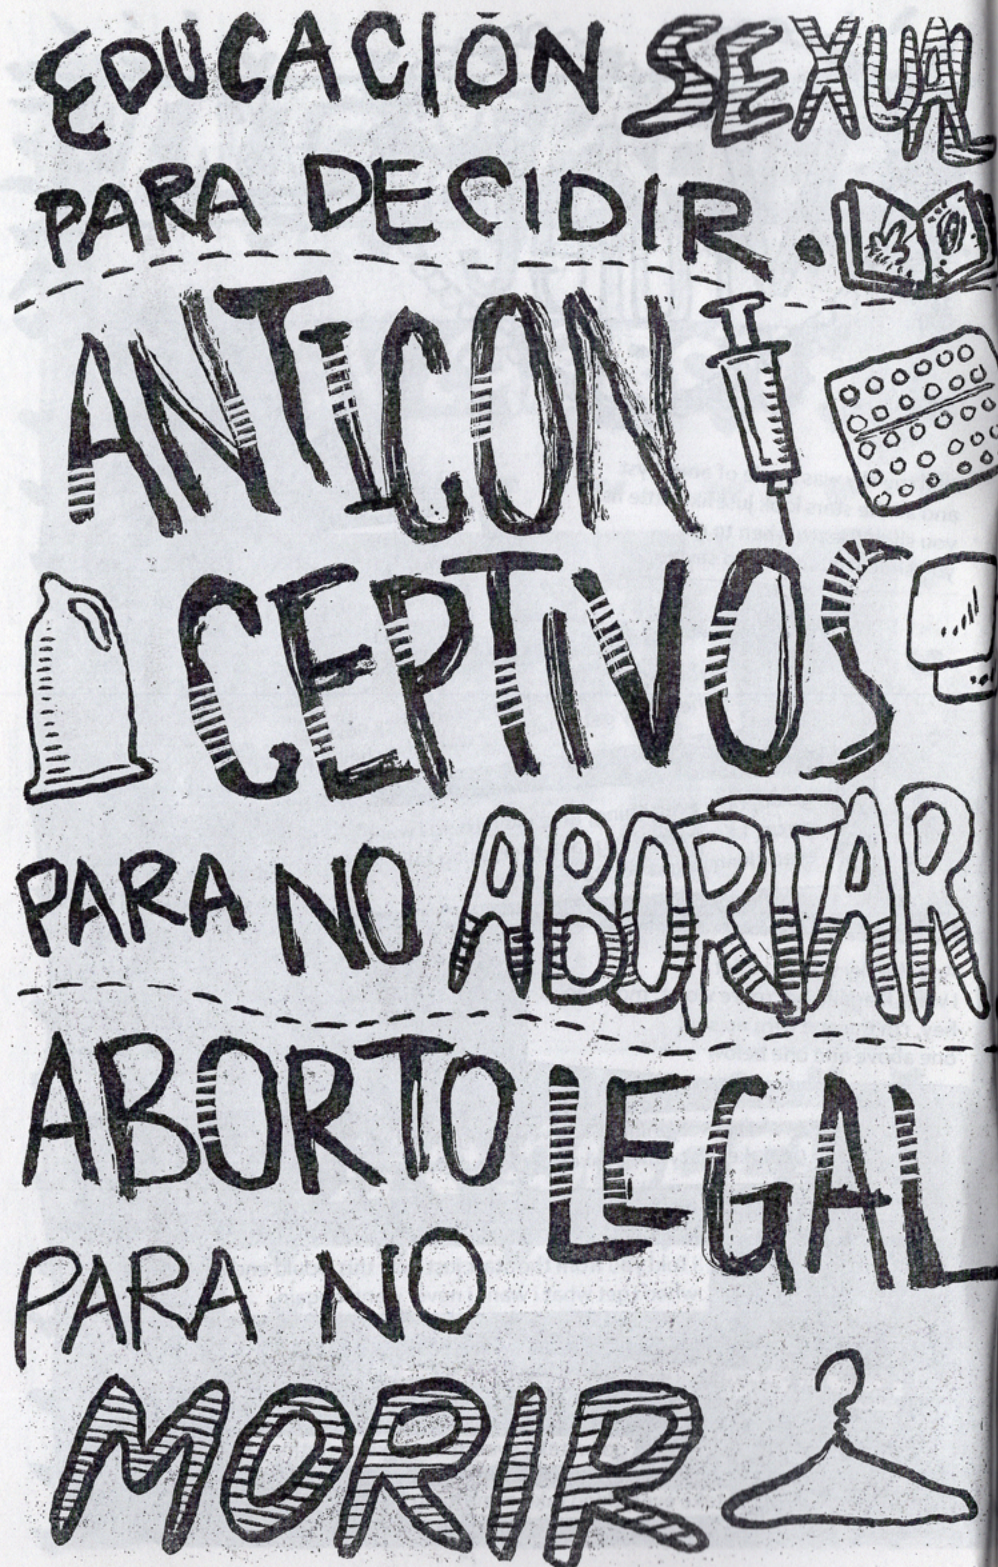 EDUCACIÓN SEXUAL
PARA DECIDIR.
ANTICON
CEPTIVOS
PARA NO ABORTAR
ABORTO LEGAL
PARA NO
MORIR